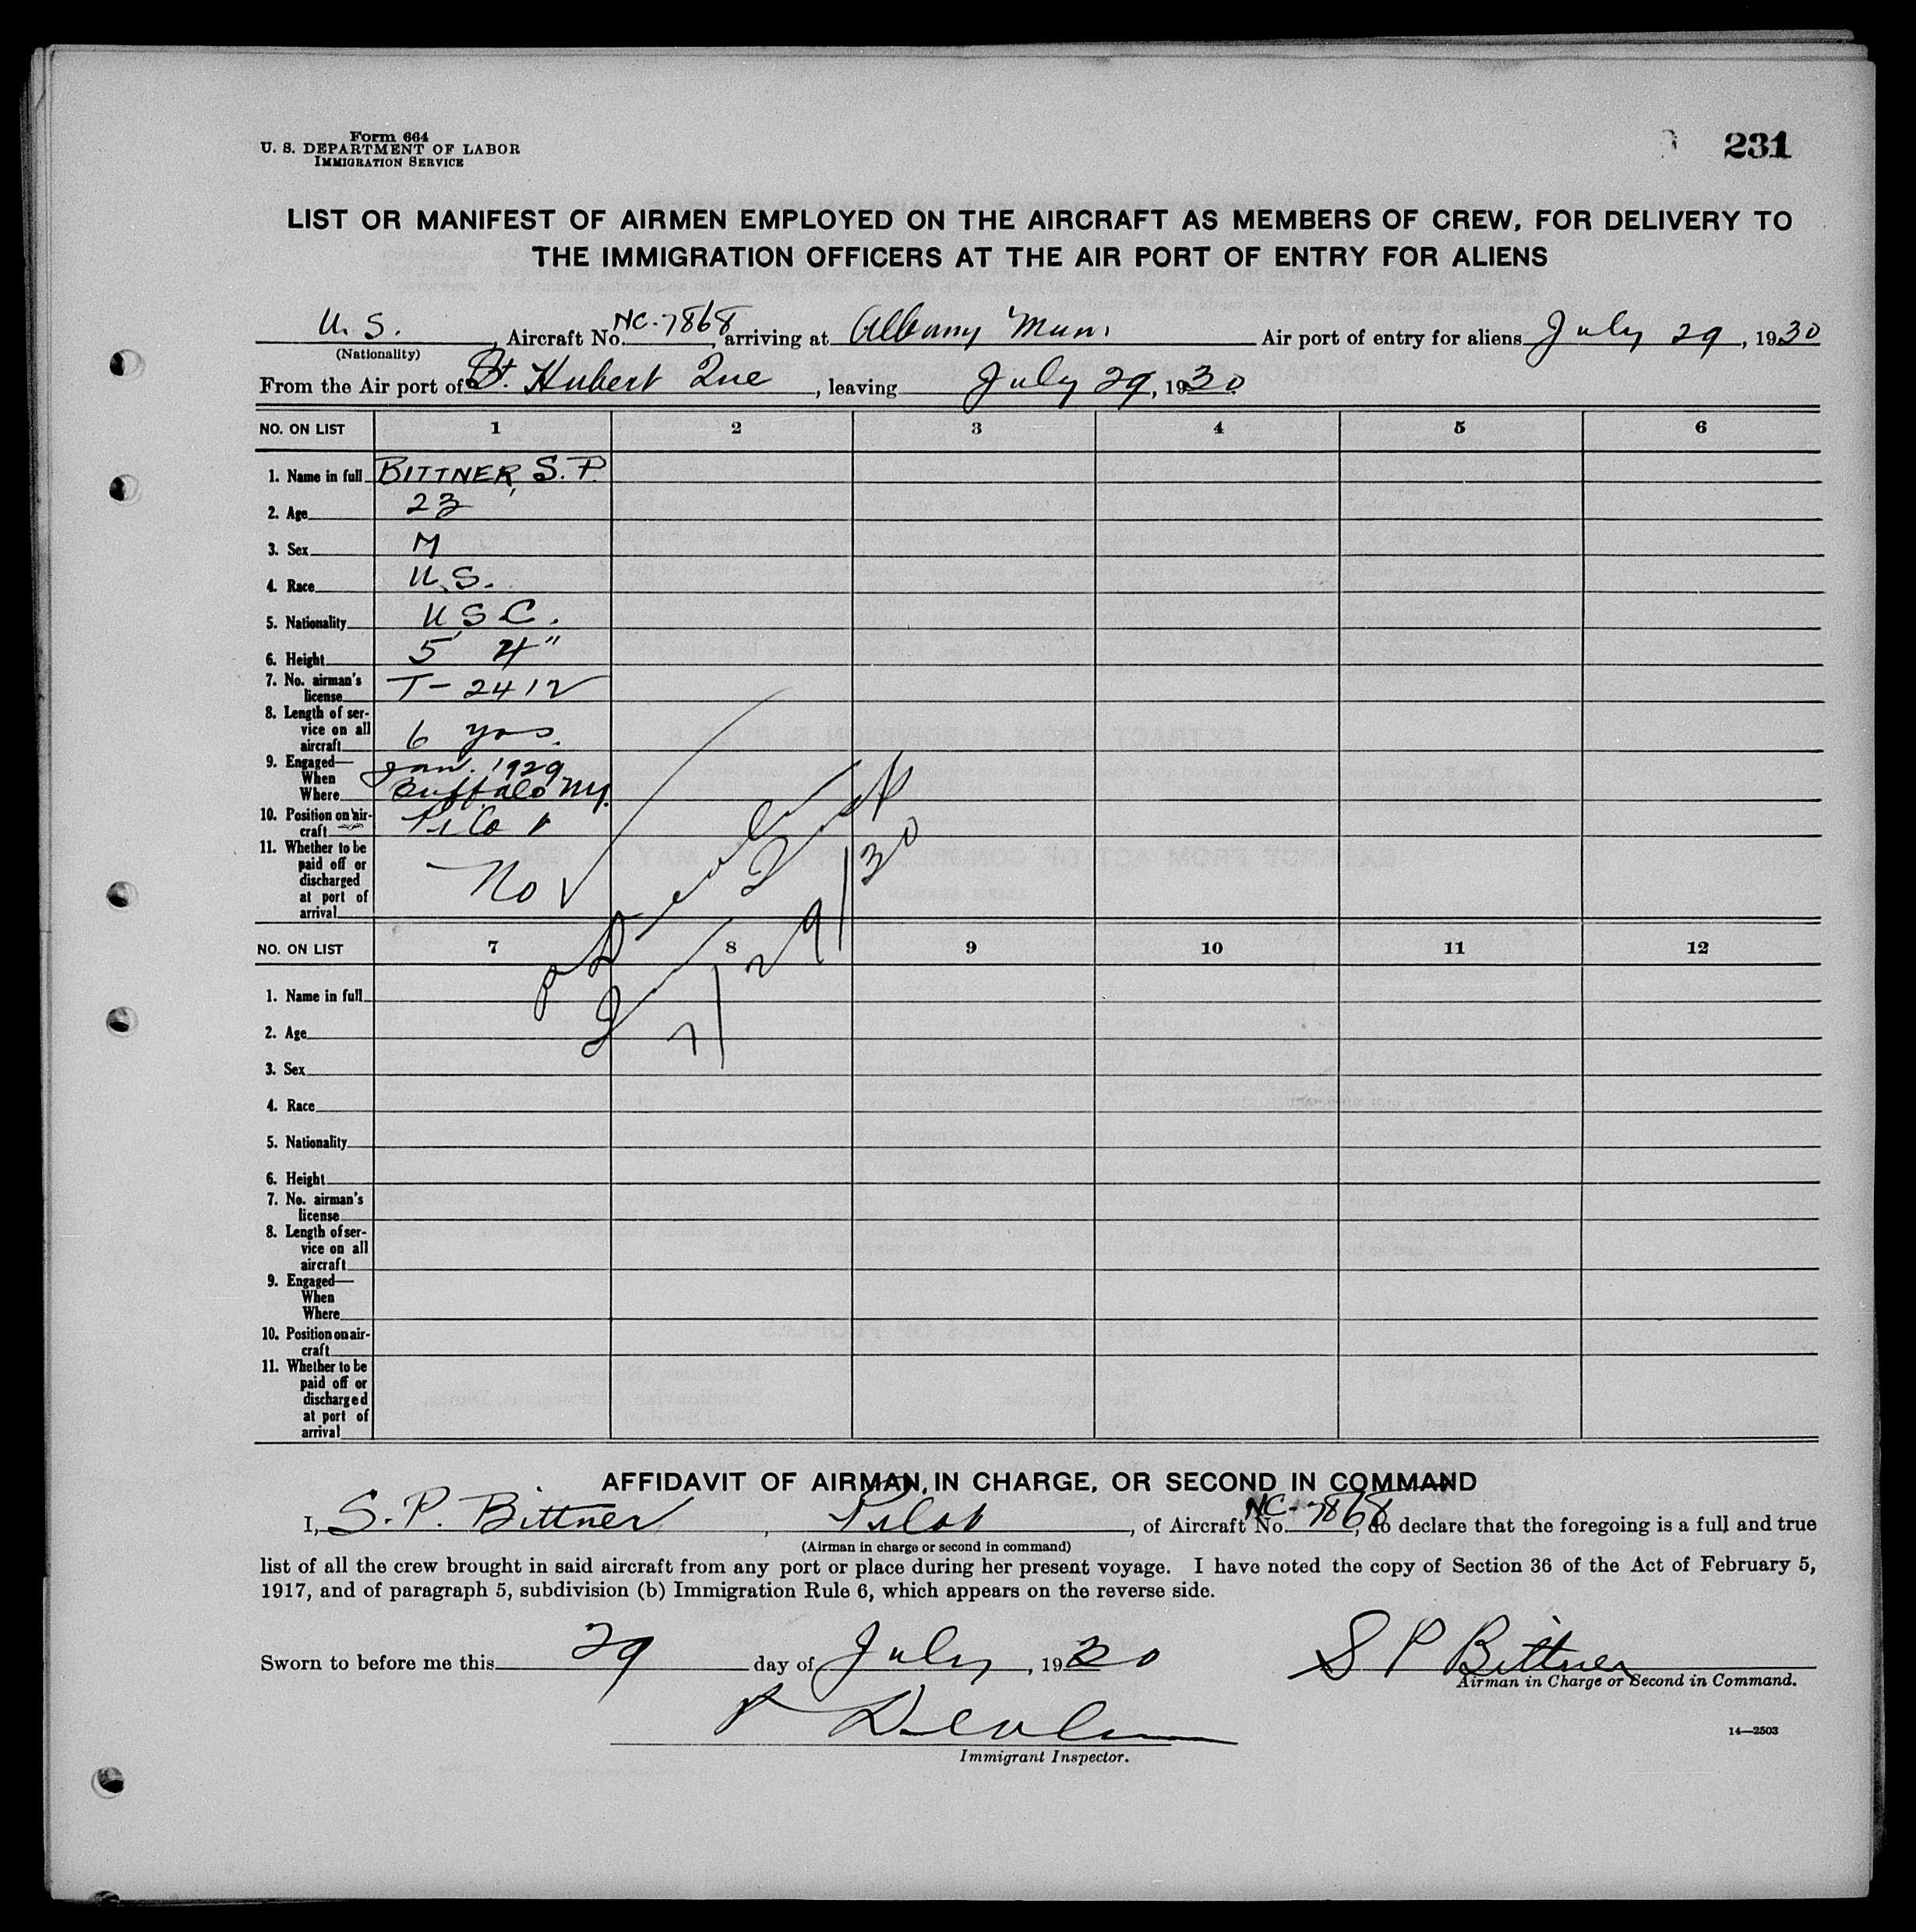 Form 664
U. S. DEPARTMENT OF LABOR
IMMIGRATION SERVICE
231
LIST OR MANIFEST OF AIRMEN EMPLOYED ON THE AIRCRAFT AS MEMBERS OF CREW, FOR DELIVERY TO
THE IMMIGRATION OFFICERS AT THE AIR PORT OF ENTRY FOR ALIENS
U. S., Aircraft No. NC-7868, arriving at Albany Mun. Air port of entry for aliens July 29, 1930
(Nationality)
From the Air port of St. Hubert Que, leaving July 29, 1930
NO. ON LIST 1 2 3 4 5 6
1. Name in full BITTNER, S. P.
2. Age 23
3. Sex M
4. Race U.S.
5. Nationality U S C.
6. Height 5' 4"
7. No. airman's
license T-2412
8. Length of ser-
vice on all
aircraft 6 yrs.
9. Engaged—
When Jan. 1929
Where Buffalo NY.
10. Position on air-
craft Pilot
11. Whether to be
paid off or
discharged
at port of
arrival No
P Devlin
7/29/30
NO. ON LIST 7 8 9 10 11 12
1. Name in full
2. Age
3. Sex
4. Race
5. Nationality
6. Height
7. No. airman's
license
8. Length of ser-
vice on all
aircraft
9. Engaged—
When
Where
10. Position on air-
craft
11. Whether to be
paid off or
discharged
at port of
arrival
AFFIDAVIT OF AIRMAN IN CHARGE, OR SECOND IN COMMAND
I, S. P. Bittner, Pilot, of Aircraft No. NC-7868, do declare that the foregoing is a full and true
(Airman in charge or second in command)
list of all the crew brought in said aircraft from any port or place during her present voyage. I have noted the copy of Section 36 of the Act of February 5,
1917, and of paragraph 5, subdivision (b) Immigration Rule 6, which appears on the reverse side.
Sworn to before me this 29 day of July, 1930
S P Bittner
Airman in Charge or Second in Command.
P Devlin
Immigrant Inspector.
14—2503